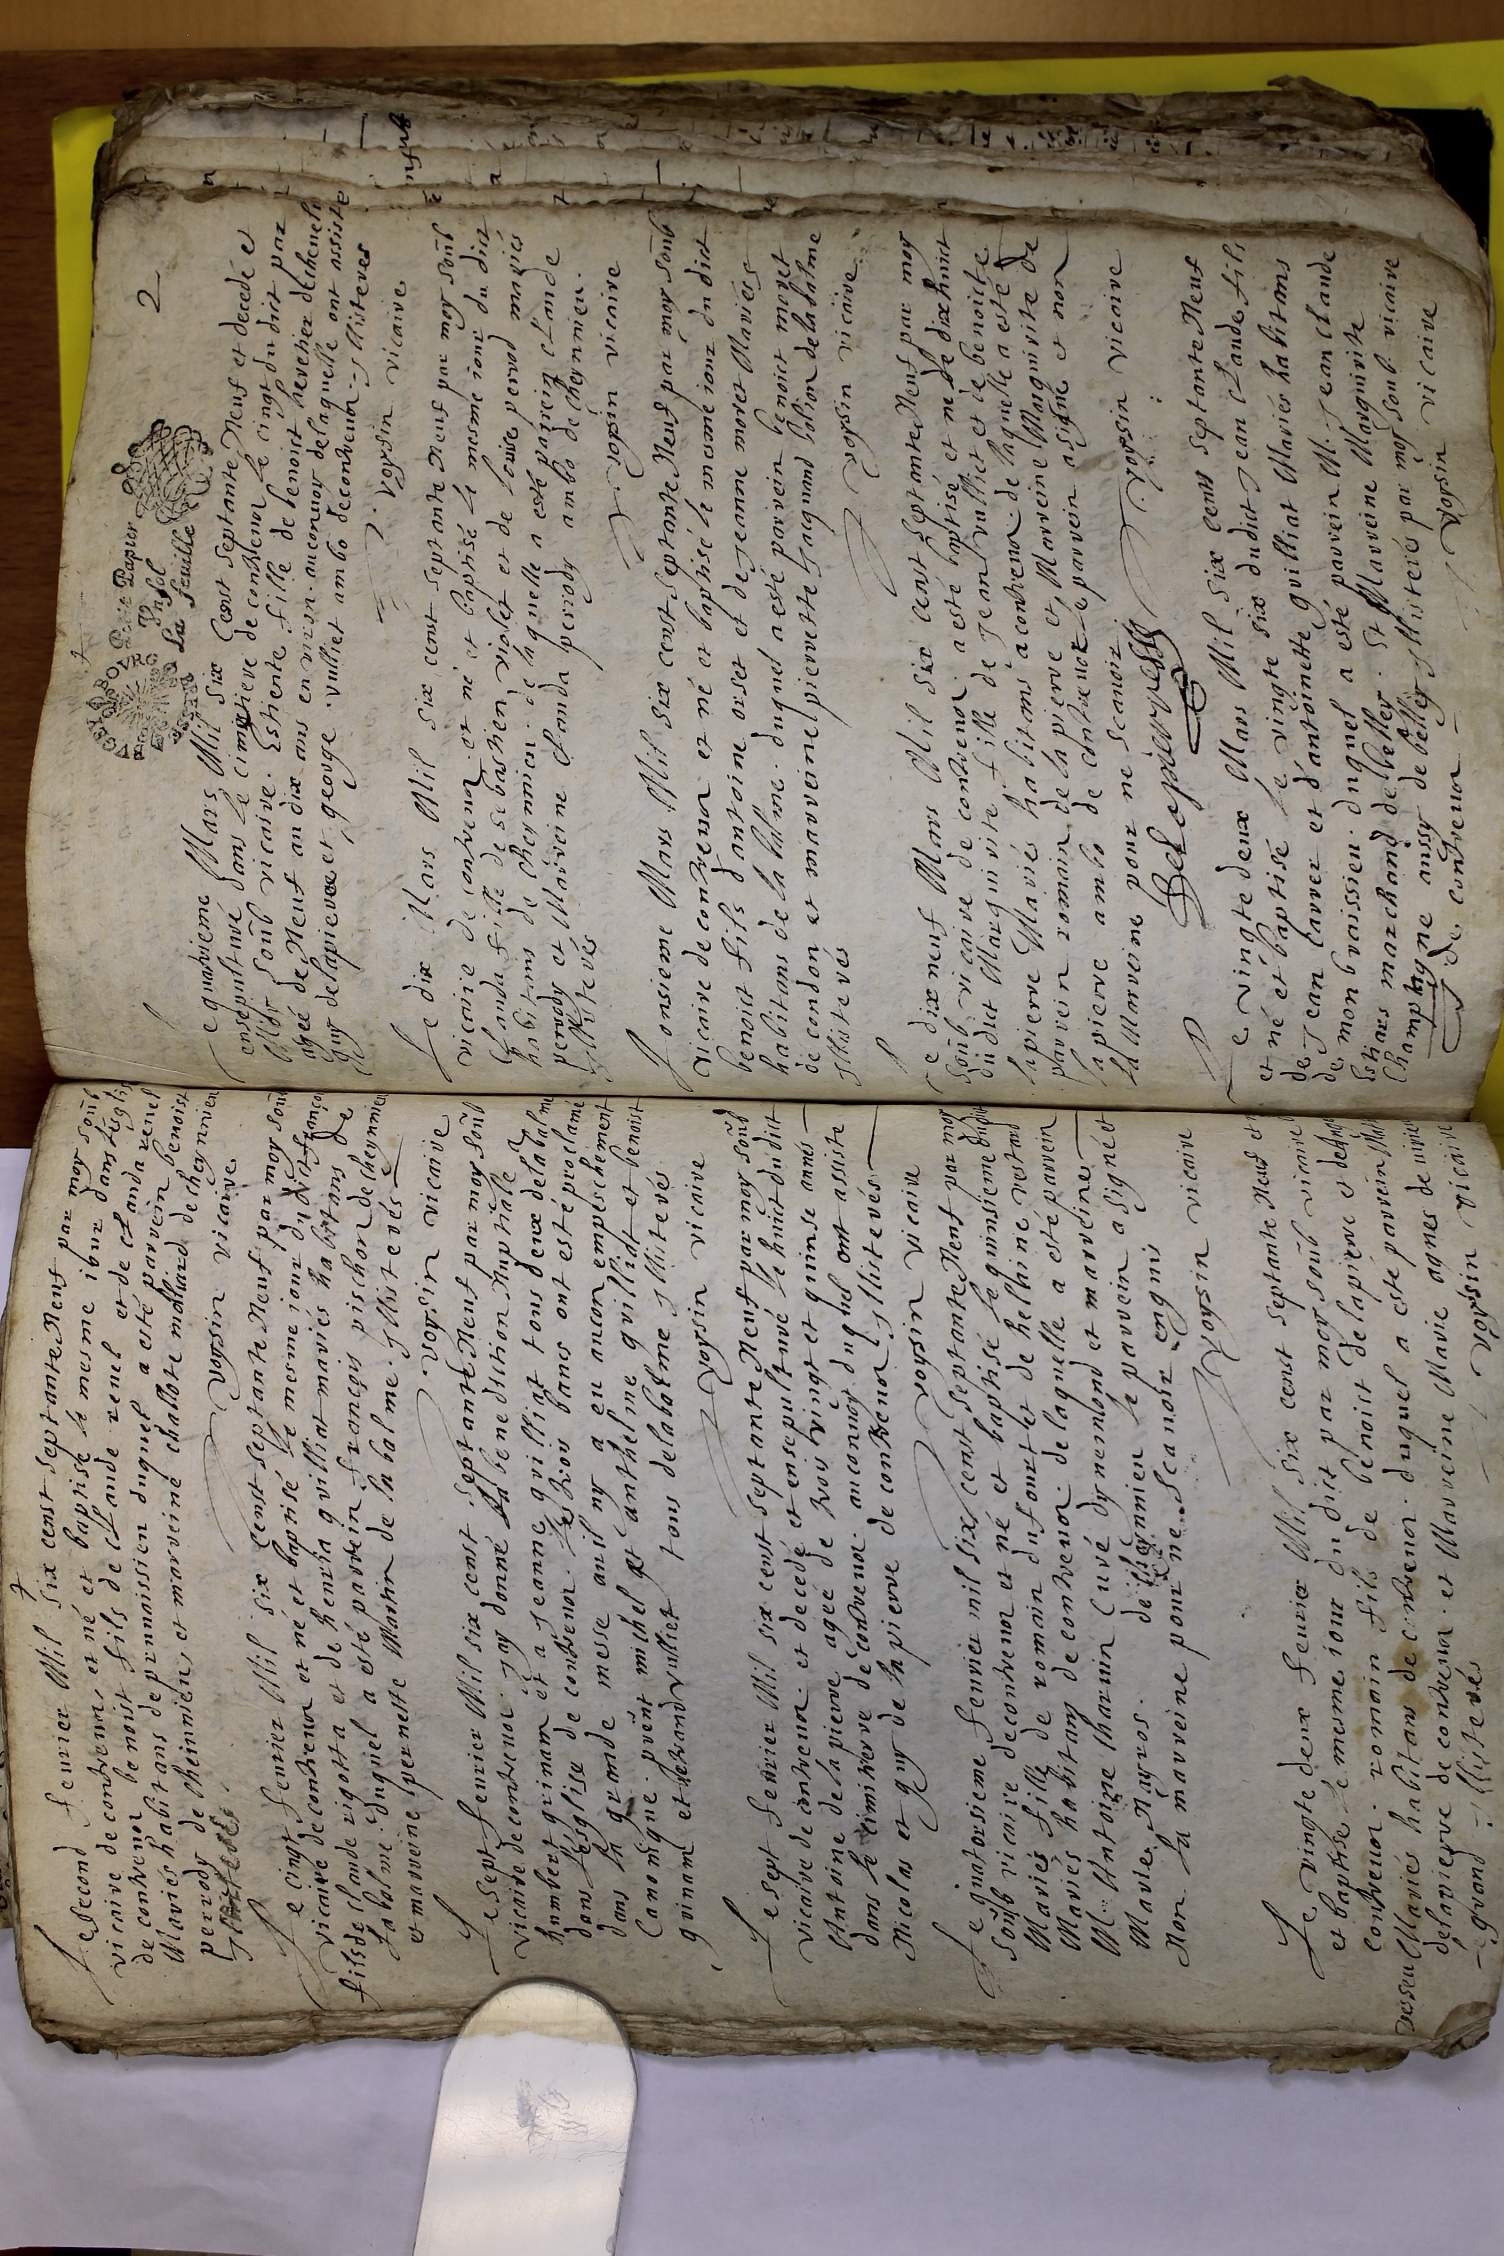 Le second feurier Mil six cent septante Neuf par moy soub
vicaire de contrenos et né et baptisé le mesme iour dans l'eglise
de contrenor benoist fils de Claude revel et de Clauda revel
Mariés habitans de prunaissieu duquel a esté parrein benoist
perrody de cheinnieu, et marreine challote mollard de cheynnieu
Illiterés.
voysin vicaire
Le cinq feurier Mil six cent septante Neuf par moy soub
vicaire de contrenor et né et baptisé le mesme iour du dict françois
fils de Claude vigotta et de henria guilliat mariés habitans de
la balme. duquel a esté parrein françois pischon de cheynnieu
et marreine pernette Martin de la balme. Illiterés
voysin vicaire
Le sept feurier Mil six cent septante Neuf par moy soub
vicaire de contrenor. Jay donné la benediction Nuptiale a
humbert guinam et a Jeanne guilliat tous deux de la balme
dans l'esglise de contrenor. les trois bancs ont esté proclamé
dans la grande messe ausil ny a eu aucon empeschement
Canonique. pñent michel et anthelme guilliat et benoist
guinam et bertrand vulliet tous de la balme Illiterés
voysin vicaire
Le sept feurier Mil six cent septante Neuf par moy soub
vicaire de contrenor et decedé et ensepulturé le huict du dict
Antoine de la pierre agée de trois vingt et quinse annés
dans le cimitierre de contrenor. au convoy duquel ont assiste
Nicolas et guy de la pierre de contrenor Illisterés.
voysin vicaire
Le quatorsieme feurier mil six cent septante Neuf par moy
soub vicaire de contrenor et né et baptisé le quinsieme dudict
Mariés fille de romain dufour et de hellaine restand
Mariés habitans de contrenor. de laquelle a esté parrein
M. Antoine tharin Curé dynemond et marreine
Marie Magros. de cheynnieu le parrein a signé et
Non la marreine pour ne scanoir enquis
voysin vicaire
Le vingte deux feurier Mil six cent septante Neuf et né
et baptisé le mesme iour du dict par moy soub vicaire
contrenor. romain fils de benoict de lapierre et de
Mariés habitans de contrenor. duquel a esté parrein
delapierre de contrenor. et Marreine Marie agnes de
Illiterés
voysin vicaire
2
Petit Papier
Un sol
La feuille
Le quatrieme Mars Mil six cent septante Neuf et decedé et
ensepulturé dans le cimetiere de contrenor le cinq du dict par
soub vicaire. Estiente fille de benoist heretier
agée de Neuf au dix ans environ. au convoy de laquelle ont assiste
guy delapierre et george vulliet ambo de contrenor Illiterés
voysin vicaire
Le dix Mars Mil six cent septante Neuf par moy soub
vicaire de contrenor et né et baptisé le mesme iour du dict
Clauda fille de sebastien violet et de louise perrod mariés
habitans de cheynnieu. de laquelle a esté parrein Claude
perrody et Marreine Clauda perrody ambo de cheynnieu.
Illiterés
voysin vicaire
Lonsieme Mars Mil six cent septante Neuf par moy soub
vicaire de contrenor et né et baptisé le mesme iour du dict
benoict fils d'antoine orset et de Jeanne moret Mariés
habitans de la balme. duquel a esté parrein benoict moret
de condon et marreine pierrette Jacquand de la balme
Illiterés
voysin vicaire
Le dix neuf Mars Mil six cent septante Neuf par moy
soub vicaire de contrenor. a esté baptisé et né le dix huict
du dict Marguirite fille de Jean vulliet et de benoicte
lapierre Mariés habitans a contrenor. de laquelle a esté
parrein romain de la pierre et Marreine Marguirite de
lapierre ambo de contrenor le parrein a signé et non
la Marreine pour ne scanoir.
voysin vicaire
Delapierre
Le vingte deux Mars Mil six cents septante Neuf
et né et baptisé le vingte six dudict Jean Claude fils
de Jean larrer et d'antoinette guilliat Mariés habitans
de mon braissieu. duquel a esté parrein M. Jean Claude
Estars marchand de belley. et Marreine Marguirite
Champagne aussy de belley Illiterés par moy soub vicaire
de contrenor
voysin vicaire